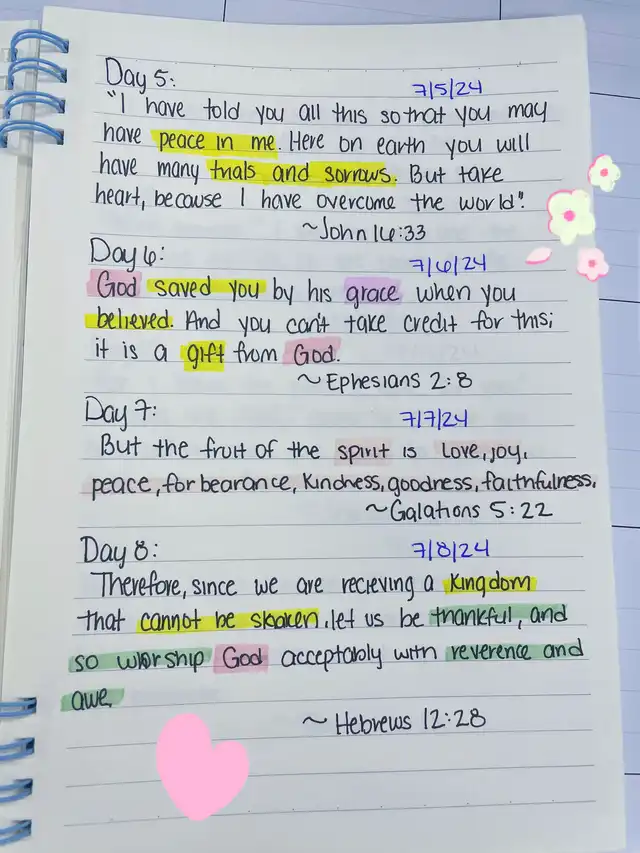 Day 5:
7/5/24
"I have told you all this so that you may
have peace in me. Here on earth you will
have many trials and sorrows. But take
heart, because I have overcome the world".
~John 16:33
Day 6:
7/6/24
God saved you by his grace when you
believed. And you can't take credit for this;
it is a gift from God.
~Ephesians 2:8
Day 7:
7/7/24
But the fruit of the spirit is love, joy,
peace, for bearance, Kindness, goodness, faithfulness.
~Galations 5:22
Day 8:
7/8/24
Therefore, since we are recieving a Kingdom
that cannot be shaken, let us be thankful, and
so worship God acceptably with reverence and
awe.
~Hebrews 12:28